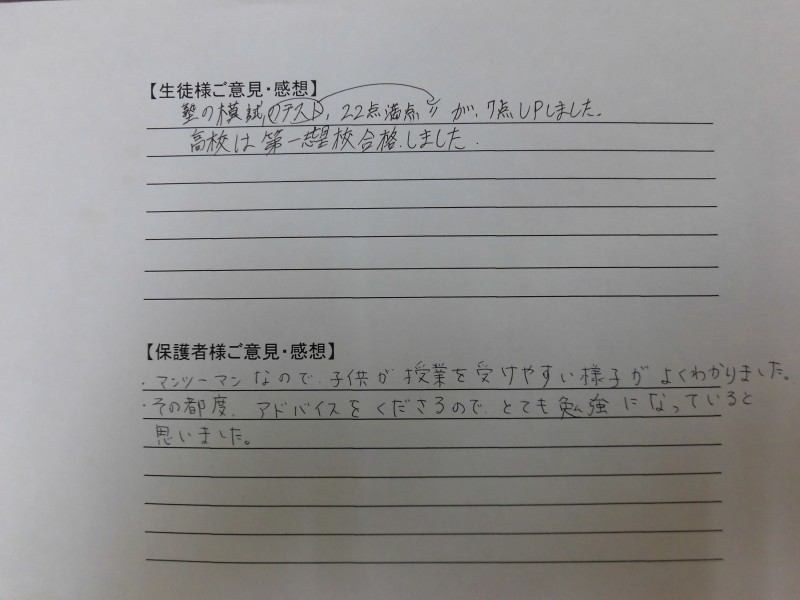 【生徒様ご意見・感想】
塾の模試のテスト、22点満点〃が、7点UPしました。
高校は第一志望校合格しました.
【保護者様ご意見・感想】
・マンツーマンなので、子供が授業を受けやすい様子がよくわかりました。
・その都度、アドバイスをくださるので、とても勉強になっていると
思いました。